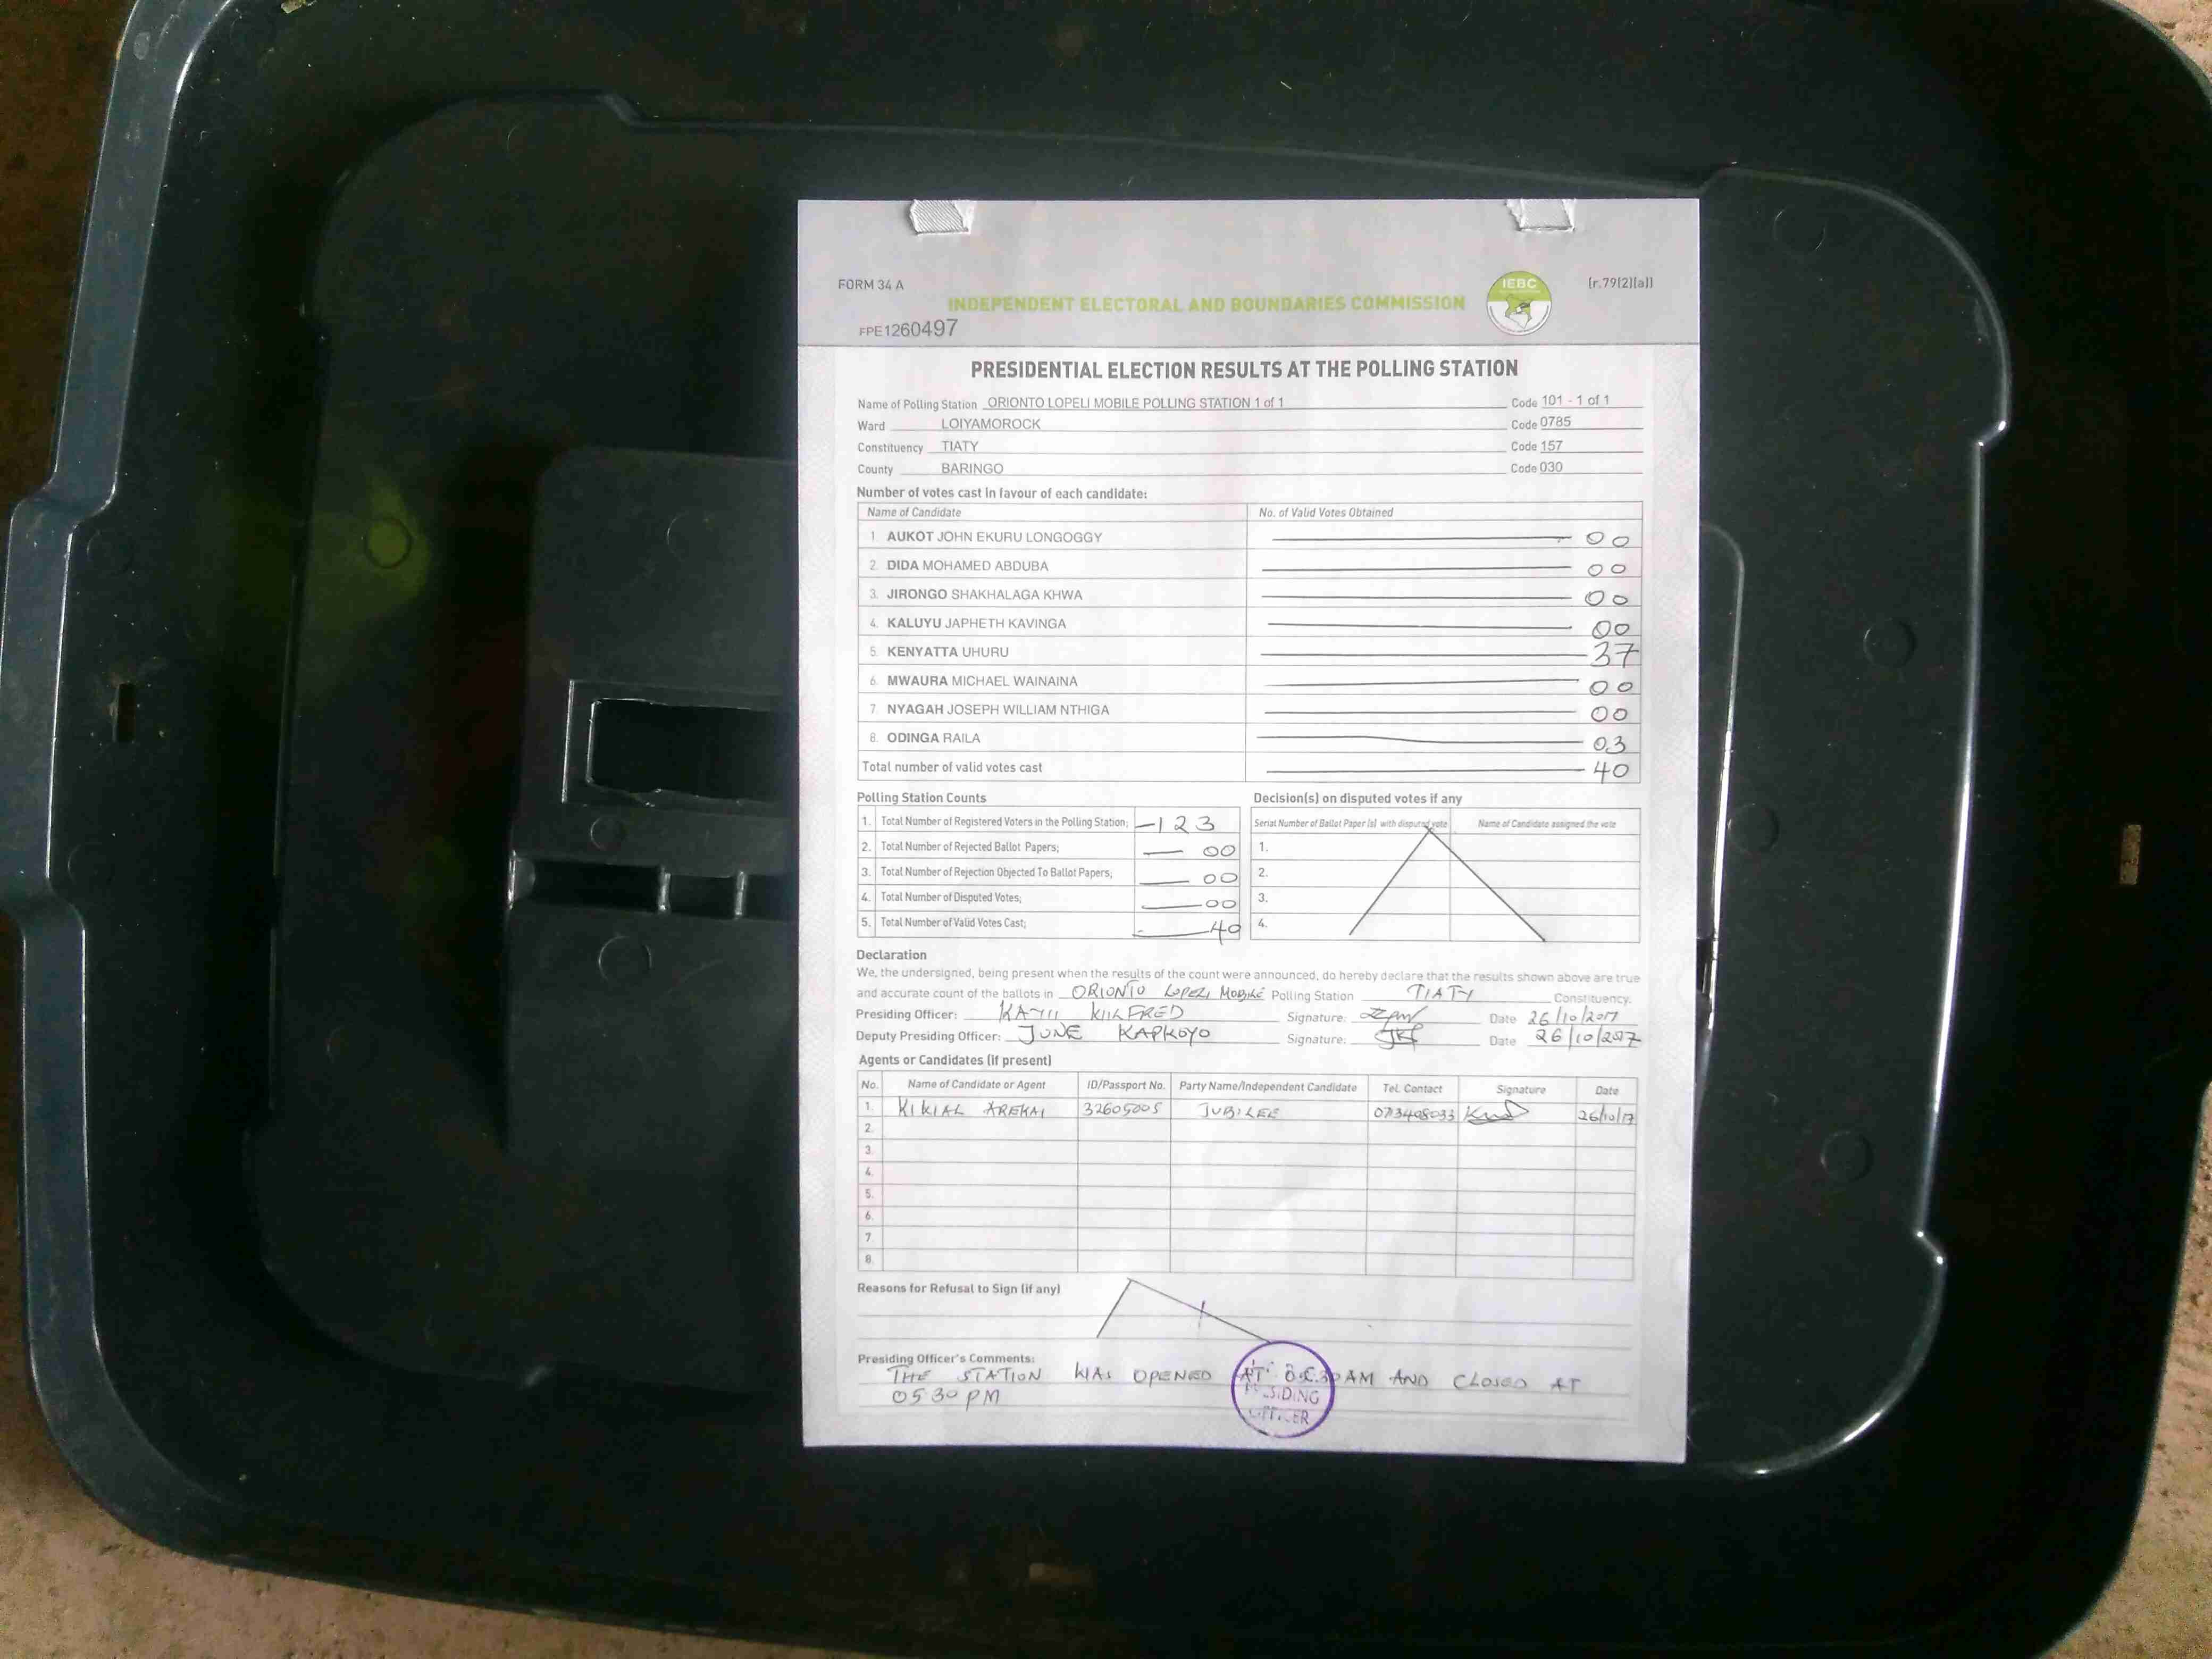 FORM 34 A
IEBC
[r.79(2)(a)]
INDEPENDENT ELECTORAL AND BOUNDARIES COMMISSION
FPE1260497
PRESIDENTIAL ELECTION RESULTS AT THE POLLING STATION
Name of Polling Station ORIONTO LOPELI MOBILE POLLING STATION 1 of 1 Code 101 - 1 of 1
Ward LOIYAMOROCK Code 0785
Constituency TIATY Code 157
County BARINGO Code 030
Number of votes cast in favour of each candidate:
Name of Candidate No. of Valid Votes Obtained
1 AUKOT JOHN EKURU LONGOGGY 00
2. DIDA MOHAMED ABDUBA 00
3. JIRONGO SHAKHALAGA KHWA 00
4. KALUYU JAPHETH KAVINGA 00
5. KENYATTA UHURU 37
6. MWAURA MICHAEL WAINAINA 00
7. NYAGAH JOSEPH WILLIAM NTHIGA 00
8. ODINGA RAILA 03
Total number of valid votes cast 40
Polling Station Counts
1. Total Number of Registered Voters in the Polling Station; 123
2. Total Number of Rejected Ballot Papers; 00
3. Total Number of Rejection Objected To Ballot Papers; 00
4. Total Number of Disputed Votes; 00
5. Total Number of Valid Votes Cast; 40
Decision(s) on disputed votes if any
Serial Number of Ballot Paper (s) with disputed vote Name of Candidate assigned the vote
1.
2.
3.
4.
Declaration
We, the undersigned, being present when the results of the count were announced, do hereby declare that the results shown above are true
and accurate count of the ballots in ORIONTO LOPELI MOBILE Polling Station TIATY Constituency.
Presiding Officer: Signature: Date 26/10/2017
Deputy Presiding Officer: JUNE KAPKOYO Signature: Date 26/10/2017
Agents or Candidates (if present)
No. Name of Candidate or Agent ID/Passport No. Party Name/Independent Candidate Tel. Contact Signature Date
1. KIKIAL AREKAI 32605005 JUBILEE 0713408033 26/10/17
2.
3.
4.
5.
6.
7
8.
Reasons for Refusal to Sign (if any)
Presiding Officer's Comments:
THE STATION WAS OPENED AT AM AND CLOSED AT
05 30 PM
PRESIDING
OFFICER